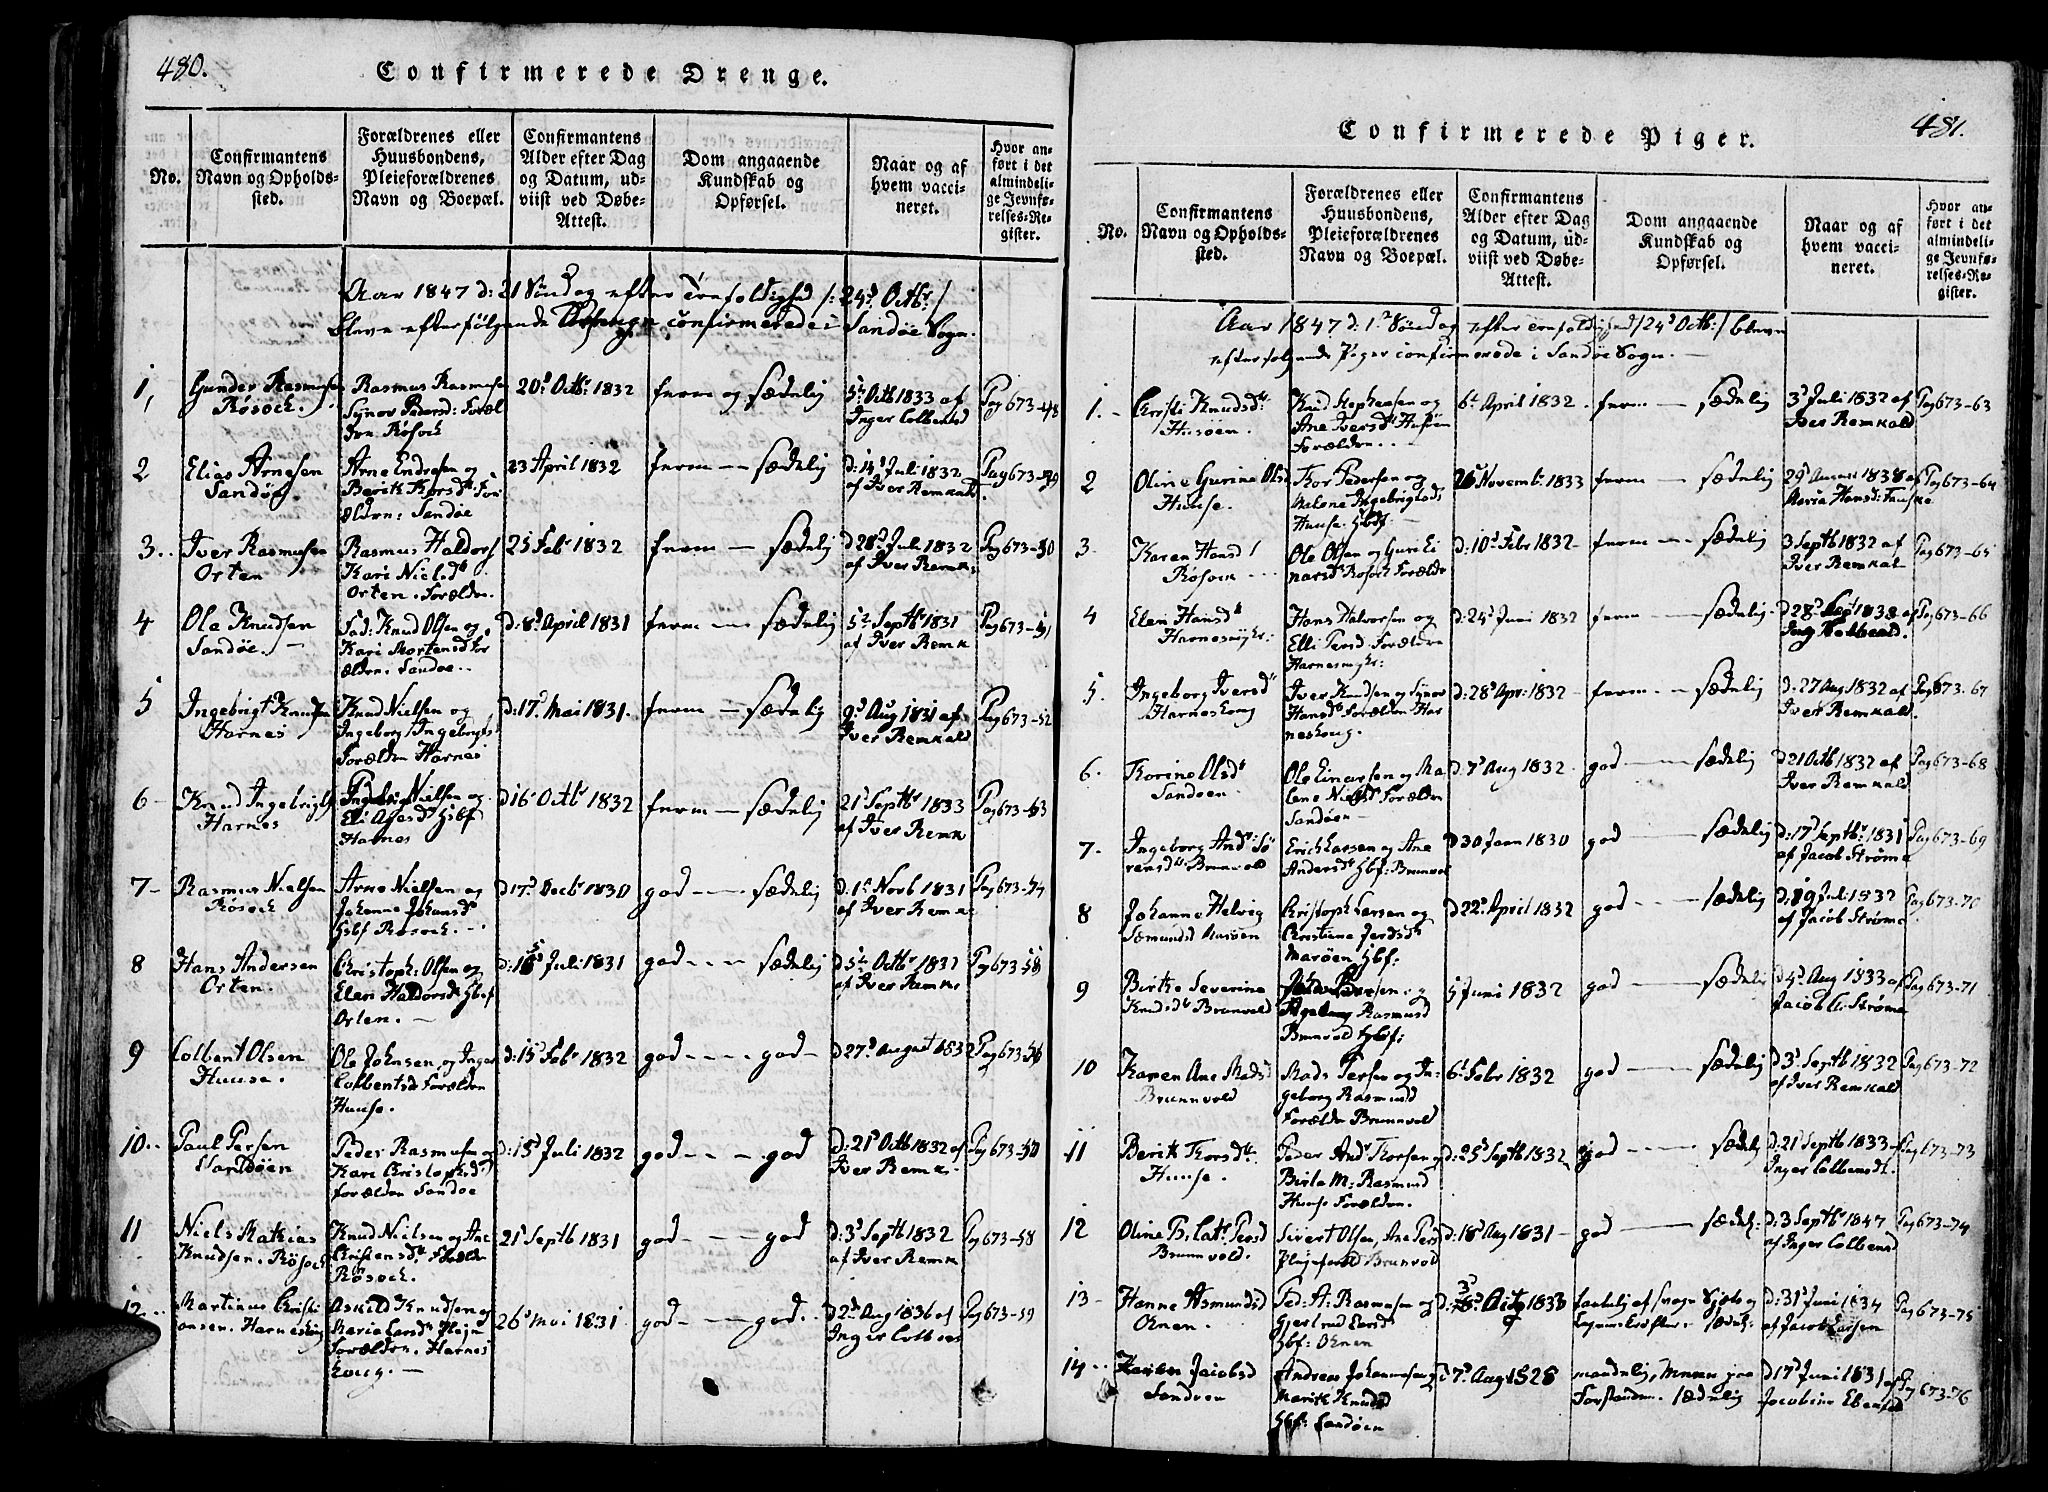 480.
Confirmerede Drenge.
No.
Confirmantens
Navn og Opholds-
sted.
Forældrenes eller
Huusbondens,
Pleieforældrenes
Navn og Boepæl.
Confirmantens
Alder efter Dag
og Datum, ud-
viist ved Døbe-
Attest.
Dom angaaende
Kundskab og
Opførsel.
Naar og af
hvem vacci-
neret.
Hvor an-
ført i det
almindeli-
ge Jevnfø-
relses-Re-
gister.
Aar 1847 d: 21 Søndag efter Trefoldighed /: 24d Octbr: /
bleve efterfølgende Drenge confirmerede i Sandøe Sogn.
1, Gunder Rasmusen
Røsock.
Rasmus Rasmusen
Synov Pedersd: Foræl
dre Røsock
20d Octbr 1832
ferm og sædelig
5te Octb 1833 af
Inger Colbentsd
Pag 673-48
2 Elias Arnesen
Sandøe.
Arne Endresen og
Berit Korsdtr For
ældre: Sandøe
23 April 1832
ferm — sædelig
d: 14d Juli 1832
af Iver Remkald
Pag 673-49
3. Iver Rasmusen
Orten
Rasmus Haldors
Kari Nielsdtr
Orten. Forældre.
25 Febr 1832
ferm — sædelig
d 28d Juli 1832
af Iver Remk:
Pag 673-50
4 Ole Knudsen
Sandøe.
Fad: Knud Olsen og
Kari Mortensd For
ældre. Sandøe.
d: 8d April 1831
ferm — sædelig
5te Septbr 1831
af Iver Remk
Pag 673-51
5 Ingebrigt Knudsen
Harnes
Knud Nielsen og
Ingeborg Ingebrigts
Forældre Harnes
d: 17d Mai 1831.
ferm — sædelig
9d Aug 1831 af
Iver Remkald
Pag 673-52
6 Knud Ingebrigts
Harnes
Nielsen og
Eli Hsbf
Harnes
d 16d Octbr 1832
ferm — sædelig
21d Septbr 1833
af Iver Remk
Pag 673-53
7 Rasmus Nielsen
Røsock
Arne Nielsen og
Johanne Johansd
Hsbf Røsock.
d 17d Decbr 1830
god — sædelig
d: 1d Novb 1831
af Iver Remk
Pag 673-54
8 Hans Andersen
Orten.
Christoph: Olsen og
Elen Haldorsdtr Hsbf
Orten.
Juli 1831
god — sædelig
d 5te Octbr 1832
af Iver Remk:
Pag 673-55
9 Colbent Olsen
Huuse.
Ole Johnsen og Inger
Colbentsd Forældre
Huuse.
d: 15d Febr 1832
god — god
d 27d August 1832
Pag 673-56
10. Paul Persen
Sandøen
Peder Rasmusen og
Kari Christophsd
forældre Sandøe
d: 15d Juli 1832
god — god
d: 21d Octb 1832 af
Iver Remk.
Pag 673-57
11 Niels Mathias
Knudsen. Røsock
Knud Nielsen og Ane
Christensdtr Forældre
Røsock.
21d Septb 1831
god — god
d: 3d Septb 1832
af Iver Remk
Pag 673-58
12. Martinus Christi
ansen. Harneshoug
Askild Knudsen og
Maria Larsdtr Pleje
Forældre. Harnes
houg.
26d Mai 1831
god — god.
d 22d Aug 1836 af
Inger Colbents
Pag 673-59
481.
Confirmerede Piger.
No.
Confirmantens
Navn og Opholds-
sted.
Forældrenes eller
Huusbondens,
Pleieforældrenes
Navn og Boepæl.
Confirmantens
Alder efter Dag
og Datum, ud-
viist ved Døbe-
Attest.
Dom angaaende
Kundskab og
Opførsel.
Naar og af
hvem vacci-
neret.
Hvor an-
ført i det
almindeli-
ge Jevnfø-
relses-Re-
gister.
Aar 1847 d: Søndag efter trefoldighed /24d Octb:/ bleve
efterfølgende Piger confirmerede i Sandøe Sogn.
1. Christi Knudsdtr
Husøen.
Knud Stephensen og
Ane Iversdtr Husøen
Forældre.
6d April 1832
ferm — sædelig
3d Juli 1832 af
Iver Remkald
Pag 673-63
2 Oline Gurine Olsd
Huuse.
Thor Pedersen og
Malene Ingebrigtsd
Huuse. Hbf.
Novembr 1833
ferm — sædelig
1838 af
Maria Hansd:
Pag 673-64
3 Karen Hansd
Røsock
Ole Olsen og Guri Ei
narsd Røsock Forældre
d: 10d Febr 1832
ferm — sædelig
3 Septb 1832 af
Iver Remkal
Pag 673-65
4 Elen Hansdtr
Harnesmyhr:
Hans Halvorsen og
Elli Persd Forældre
Harnesmyhr:
d: 24d Juni 1832
ferm — sædelig
d: 28d 1838 af
Pag 673-66
5. Ingeborg Iversdtr
Harneshoug
Iver Knudsen og Synov
Hansdtr Forældre Har
neshoug.
d: 28d Apr: 1832
ferm — sædelig
d: 27 Aug 1832 af
Iver Remkald.
Pag 673-67
6. Korine Olsdtr
Sandøen
Ole Einarsen og Ma
lene Nielsd Forældre
Sandøen
d 7d Aug 1832
god — sædelig
d 21 Octb 1832 af
Iver Remkald
Pag 673-68
7. Ingeborg And: Sø
rensdtr Brunvold
Erich Larsen og Ane
Andersdtr Hbf: Brunvol
d 30 Janr 1830
god — sædelig
d: 17d Septbr 1831
af Jacob Strøme
Pag 673-69
8 Johanne Helvig
Sæmundsd Marøen
Christoph Larsen og
Christiane
Marøen Hbf:
d 22d April 1832
god — sædelig
d: 19d Juli 1832
af Jacob Strøme
Pag 673-70
9 Birthe Severine
Knudsdtr Brunvold
og
Ingeborg Rasmusd
Brunvold Hbf:
5 Juni 1832
god — sædelig
d 4d Aug 1833 af
Jacob C: Strøme
Pag 673-71
10 Karen Ane Madsd
Brunnvold
Mads Persen og In-
geborg Rasmusd
Forældre Brunnvold
6d Febr 1832
god — sædelig
d 3d Septb 1832
af Iver Remkald
Pag 673-72
11 Berit Thorsdtr
Huuse.
Peder Andr Thorsen og
Birte M: Rasmusd
Huuse Forældre.
d: 25d Septb 1832
god — sædelig
d: 21d Septb 1833
Inger Colbensdtr.
Pag 673-73
12 Oline B. Cath: Persd
Brunnvold.
Sivert Olsen, Ane Pers
Plejeforæld Brunvold
d: 18d Aug 1831
god — sædel:
d: 3 Septbr 1847
af Inger Colbensd
Pag 673-74
13 Hanne Asmundsd
Ohnen.
Ped: A: Rasmusen og
Gjertrud Larsd
Hbf: Ohnen
1833
sædel:
d: 31d Juni 1834
af Jacob Larsen
Pag 673-75
14 Karen Jacobsd
Sandøen
Andreas Johannesen og
Marit Knudsd
Hbf: Sandøen
d 7d Aug 1828
maadelig, Mmm paa
Forstanden. sædelig
d 17d Juni 1831 af
Jacobine Ebensd
Pag 673-76